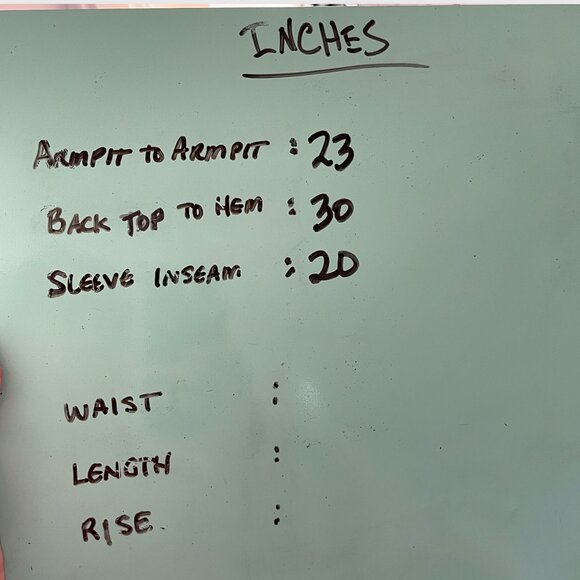 INCHES
ARMPIT TO ARMPIT : 23
BACK TOP TO HEM : 30
SLEEVE INSEAM : 20
WAIST :
LENGTH :
RISE :